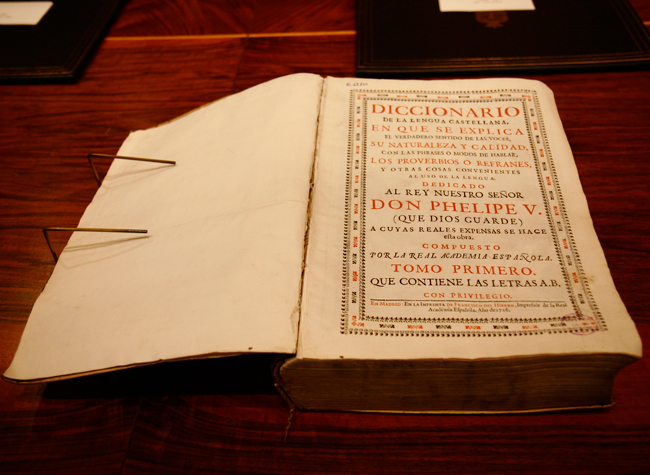 DICCIONARIO
DE LA LENGUA CASTELLANA,
EN QUE SE EXPLICA
EL VERDADERO SENTIDO DE LAS VOCES,
SU NATURALEZA Y CALIDAD,
CON LAS PHRASES O MODOS DE HABLAR,
LOS PROVERBIOS O REFRANES,
Y OTRAS COSAS CONVENIENTES
AL USO DE LA LENGUA.
DEDICADO
AL REY NUESTRO SEÑOR
DON PHELIPE V.
(QUE DIOS GUARDE)
A CUYAS REALES EXPENSAS SE HACE
esta obra.
COMPUESTO
POR LA REAL ACADEMIA ESPAÑOLA.
TOMO PRIMERO.
QUE CONTIENE LAS LETRAS A.B.
CON PRIVILEGIO.
EN MADRID: EN LA IMPRENTA DE FRANCISCO DEL HIERRO, Impressor de la Real
Academia Española, Año de 1726.